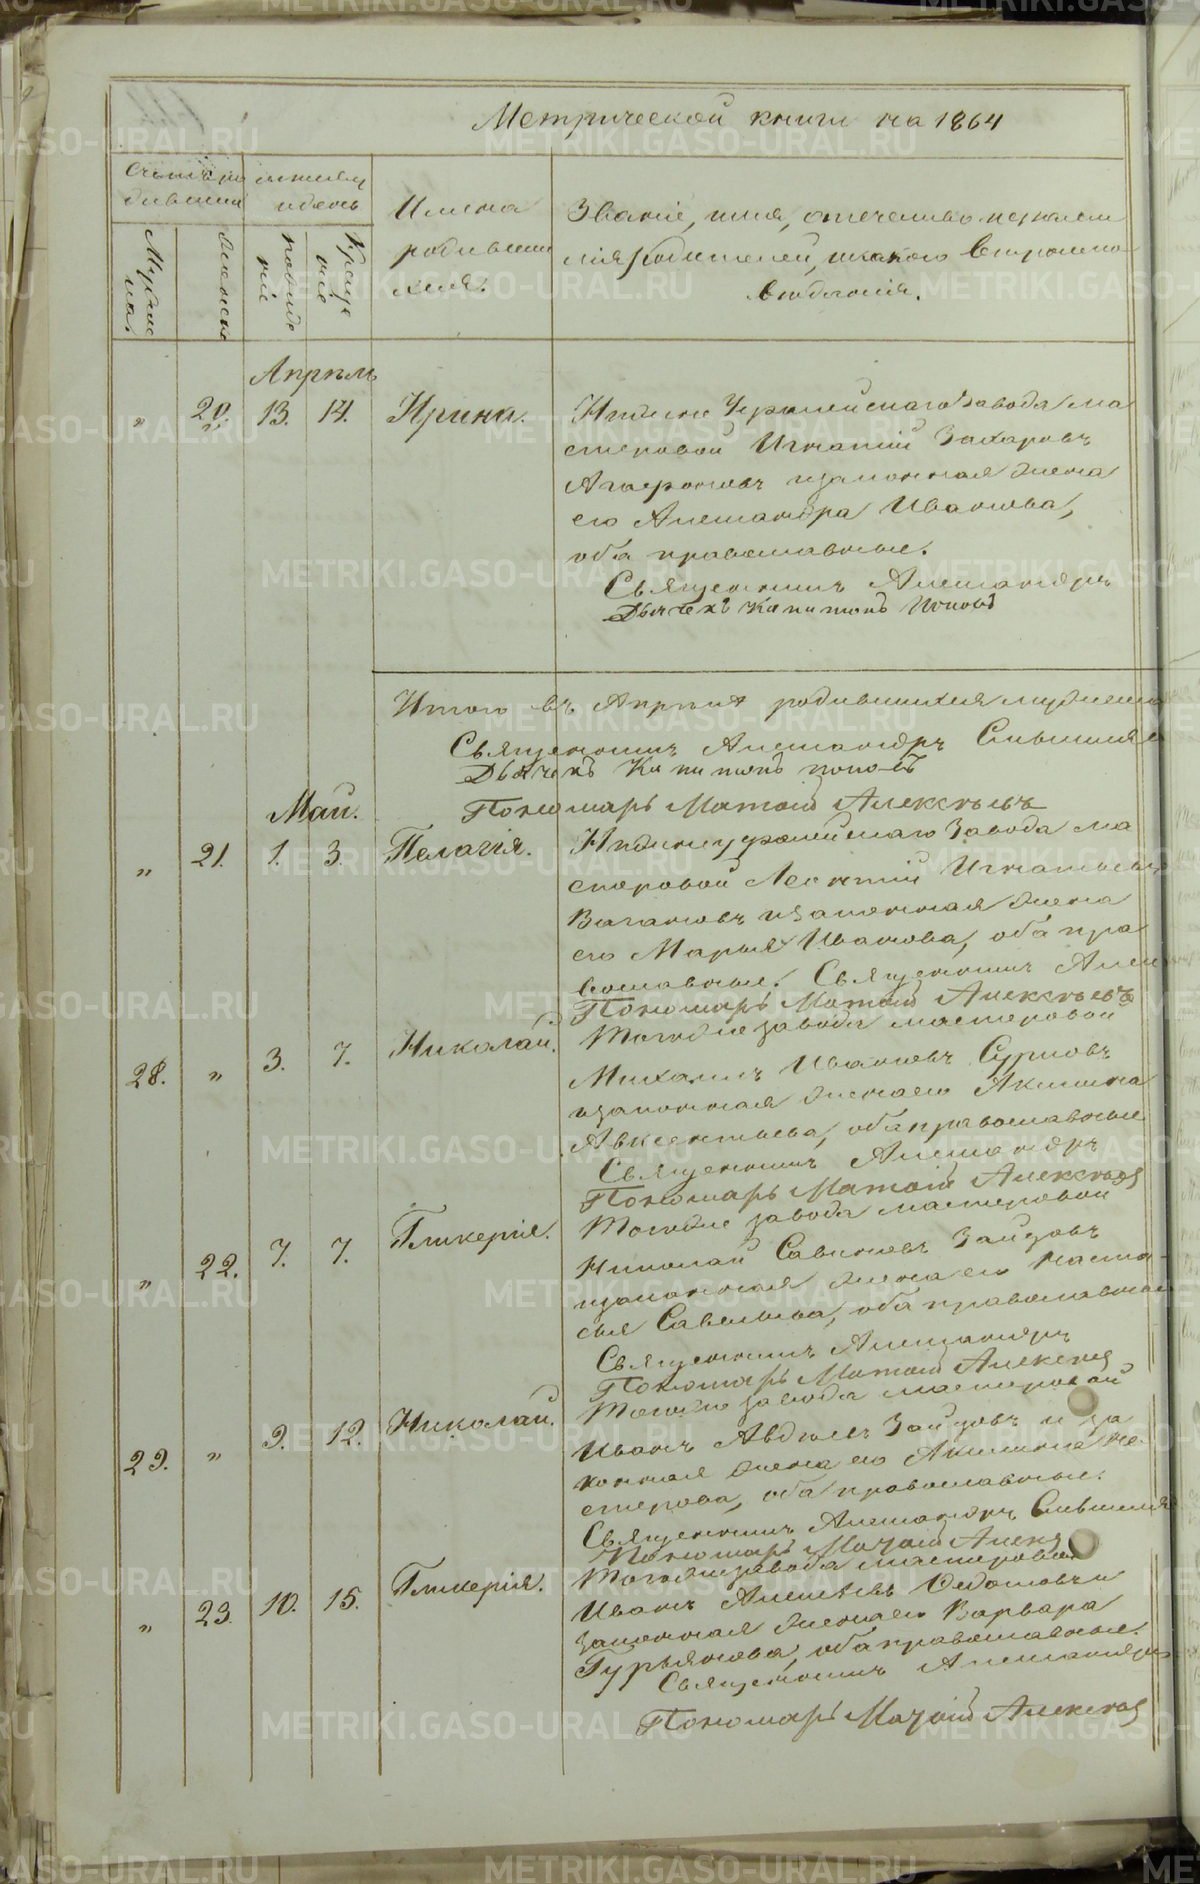 Метрической книги на 1864
Счетъ ро
дившихся
Мужеска
Женска
Мѣсяцъ
и день
рожде
нія
креще
нія
Имена
родивши
хся.
Званіе, имя, отечество и фамил
лія родителей, и какого вѣроиспо
вѣданія.
Апрѣль
„ 20. 13. 14. Ирина.
Нижне Уфалейскаго завода ма
стеровой Игнатій Захаровъ
и законная жена
его Александра Иванова,
оба православные.
Священникъ Александръ
Дьячекъ Капитонъ Поповъ
Итого въ Апрѣлѣ родившихся мужеска
Священникъ Александръ
Дьячекъ Капитонъ Поповъ
Пономарь Матвій Алексѣевъ
Май.
„ 21. 1. 3. Пелагія.
Нижнеуфалейскаго завода ма
стеровой Леонтій Игнатьевъ
Вагановъ и законная жена
его Марья Иванова, оба пра
вославные. Священникъ Алек
Пономарь Матвій Алексѣевъ
28. „ 3. 7. Николай.
Тогоже завода мастеровой
Михаилъ Ивановъ
и законная жена его Акилина
Авксентьева, оба православные
Священникъ Александръ
Пономарь Матвій Алексѣев
„ 22. 7. 7. Гликерія.
Тогоже завода мастеровой
Николай Савиновъ Зайцовъ
и законная жена его Наста
сья Савельева, оба православные
Священникъ Александръ
Пономарь Матвій Алексѣев
29. „ 9. 12. Николай.
Тогоже завода мастеровой
Иванъ Авдѣевъ Зайцовъ и за
конная жена его Акилина Не
стерова, оба православные.
Священникъ Александръ
Пономарь Матвій Алексѣ
„ 23. 10. 15. Гликерія.
Тогоже завода мастеровой
Иванъ Алексѣевъ Федотовъ и
законная жена его Варвара
Гурьянова, оба православные.
Священникъ Александръ
Пономарь Матвій Алексѣев
METRIKI.GASO-URAL.RU